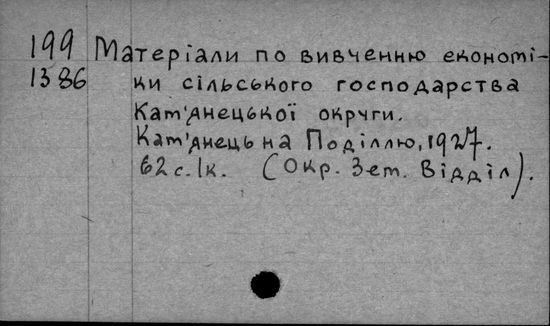 199 Матеріали по вивченню економі-
1386 ки сільського господарства
Кам'янецької округи.
Кам'янець на Поділлю, 1927.
62 с. 1к. (Окр. Зем. Відділ).